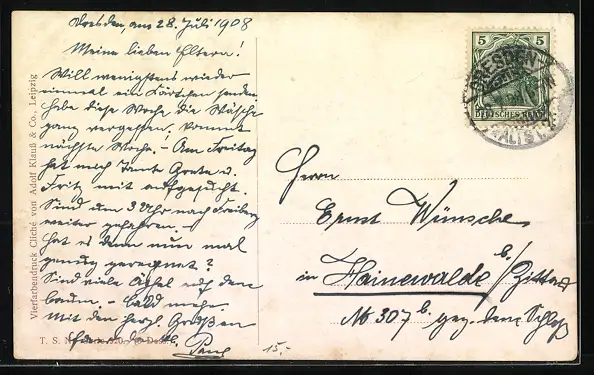 Dresden, am 28. Juli 1908
Meine lieben Eltern!
Will wenigstens wieder
einmal ein Kärtchen senden
habe diese Woche die Wäsche
ganz vergessen. Kommt
nächste Woche. – Am Freitag
hat mich Tante Grete u.
Fritz mit aufgesucht.
Sind um 3 Uhr nach Freiberg
weiter gefahren. –
Hat es denn nun mal
genug geregnet?
Sind viele Äpfel auf dem
Baum – bald mehr
Mit den herzl. Grüßen
Paul
15,-
Vierfarbendruck Cliché von Adolf Klauß & Co., Leipzig
T. S. N.
5 5
DEUTSCHES REICH
DRESDEN
ALTST.
Herrn
Ernst Wünsche
in Hainewalde b/Zittau
No 307 b. geg. dem Schloß